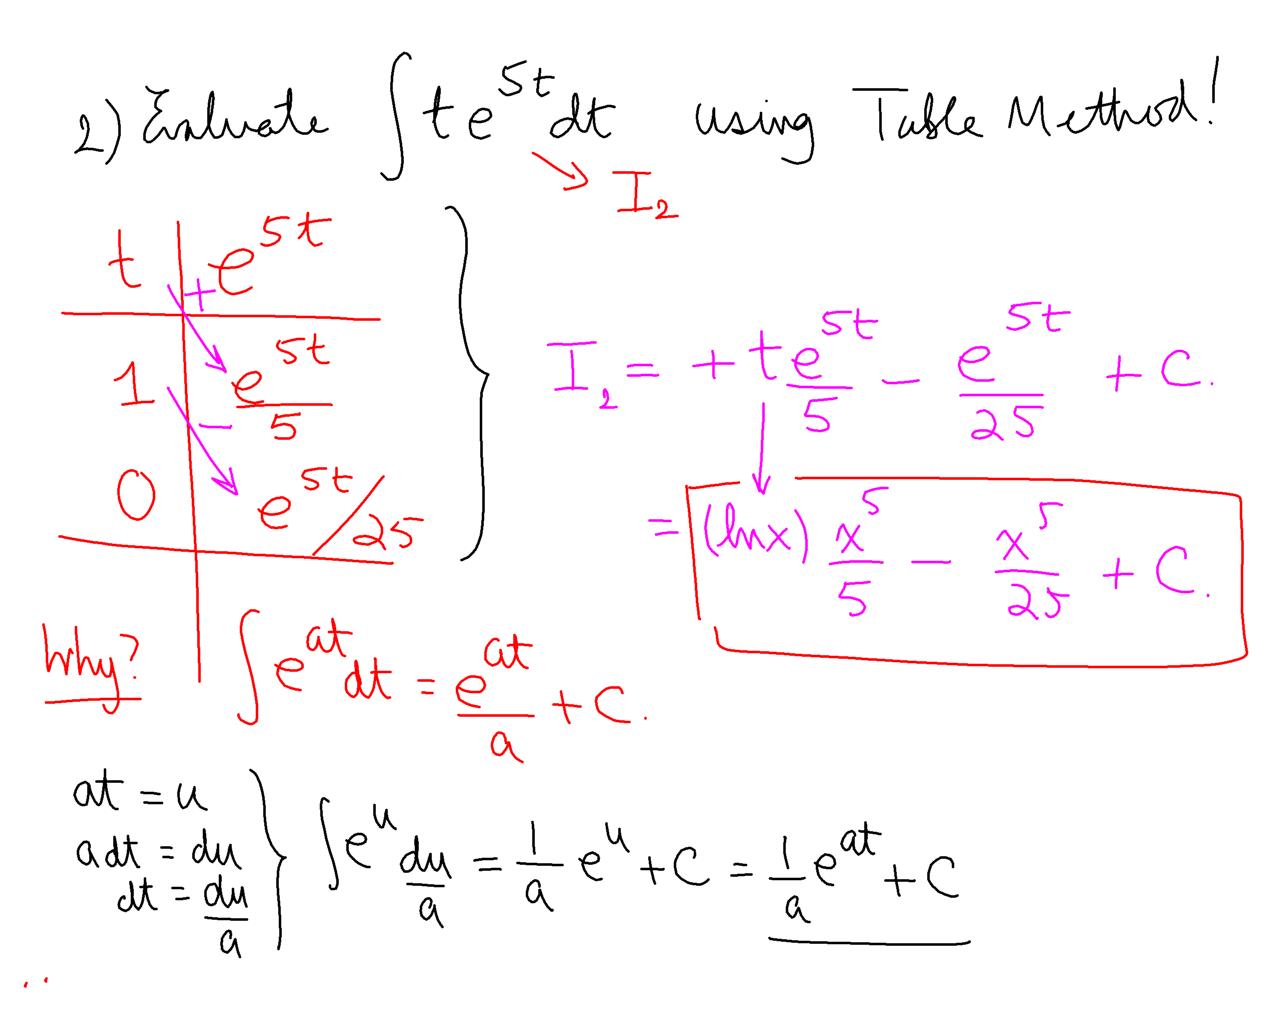 2) Evaluate ∫ t e^{5t} dt using Table Method!
→ I₂
t | + e^{5t}
1 | − e^{5t}/5
0 | e^{5t}/25
I₂ = + t e^{5t}/5 − e^{5t}/25 + C.
= (ln x) x^5/5 − x^5/25 + C.
Why? ∫ e^{at} dt = e^{at}/a + C.
at = u
a dt = du
dt = du/a
∫ e^u du/a = 1/a e^u + C = 1/a e^{at} + C